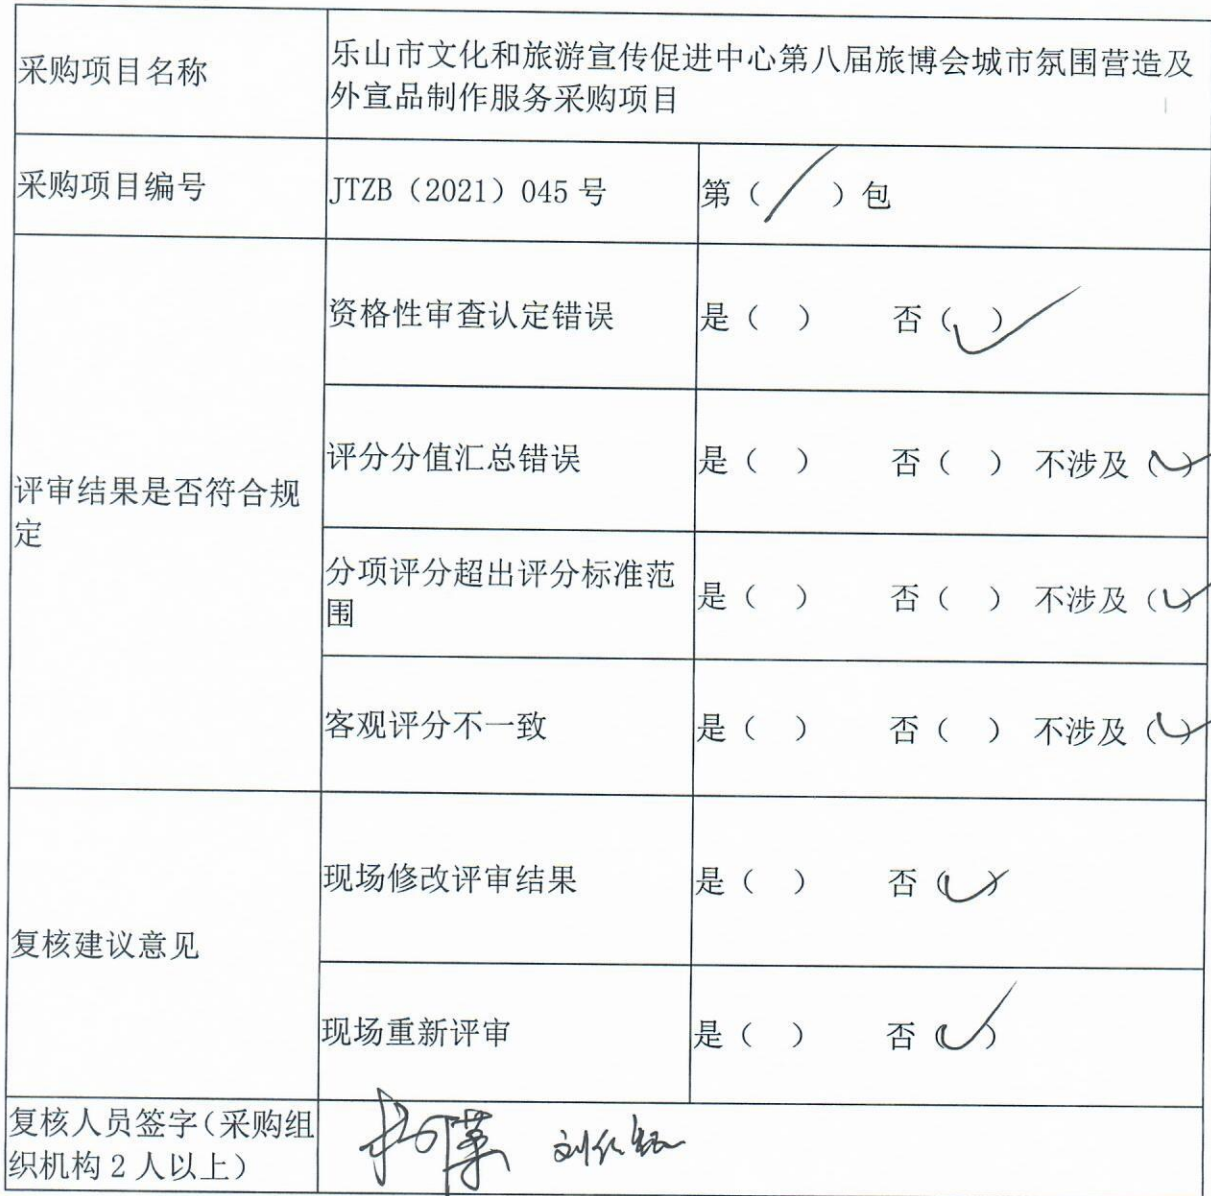 采购项目名称
乐山市文化和旅游宣传促进中心第八届旅博会城市氛围营造及
外宣品制作服务采购项目
采购项目编号
JTZB（2021）045号
第（/）包
评审结果是否符合规
定
资格性审查认定错误
是（ ） 否（✓）
评分分值汇总错误
是（ ） 否（ ） 不涉及（✓）
分项评分超出评分标准范
围
是（ ） 否（ ） 不涉及（✓）
客观评分不一致
是（ ） 否（ ） 不涉及（✓）
复核建议意见
现场修改评审结果
是（ ） 否（✓）
现场重新评审
是（ ） 否（✓）
复核人员签字（采购组
织机构2人以上）